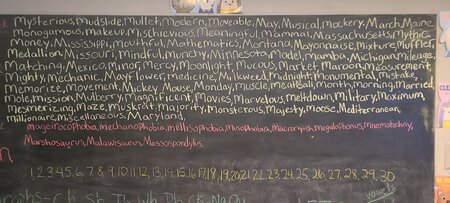 Mysterious, Mudslide, Mullet, Modern, Moveable, May, Musical, mockery, March, Maine
Monogamous, makeup, Mischievious, Meaningful, Mammal, Massachusetts, Mythic,
money, Mississippi, mouthful, Mathematics, Montana, Mayonnaise, Mixture, Muffler,
Medallion, Missouri, Mindful, munchy, Minnesota, Model, mambo, Michigan, Mileage,
Matching, Mexico, minor, Mercy, Moonlight, Mucous, Market, Maroon, Measurement,
Mighty, Mechanic, Mayflower, medicine, Milkweed, Midnight, monumental, mistake,
Memorize, movement, Mickey Mouse, Monday, muscle, meatball, month, morning, Married,
mole, Mission, Mulberry, Magnificent, Movies, Marvelous, meltdown, Military, Maximum,
Mesmerizing, Maze, muskrat, Majority, Monsterous, Majesty, morse, Mediterranean,
millionaire, miscellaneous, Maryland,
mageirocophobia, mechanophobia, mellisophobia, Musophobia, Macronyish, megalophonus, mnemotechny,
Marshosaurus, Malawisaurus, Massospondylus,
1,2,3,4,5,6,7,8,9,10,11,12,13,14,15,16,17,18,19,20,21,22,23,24,25,26,27,28,29,30
Sh Th Wh Ph ck
vowels